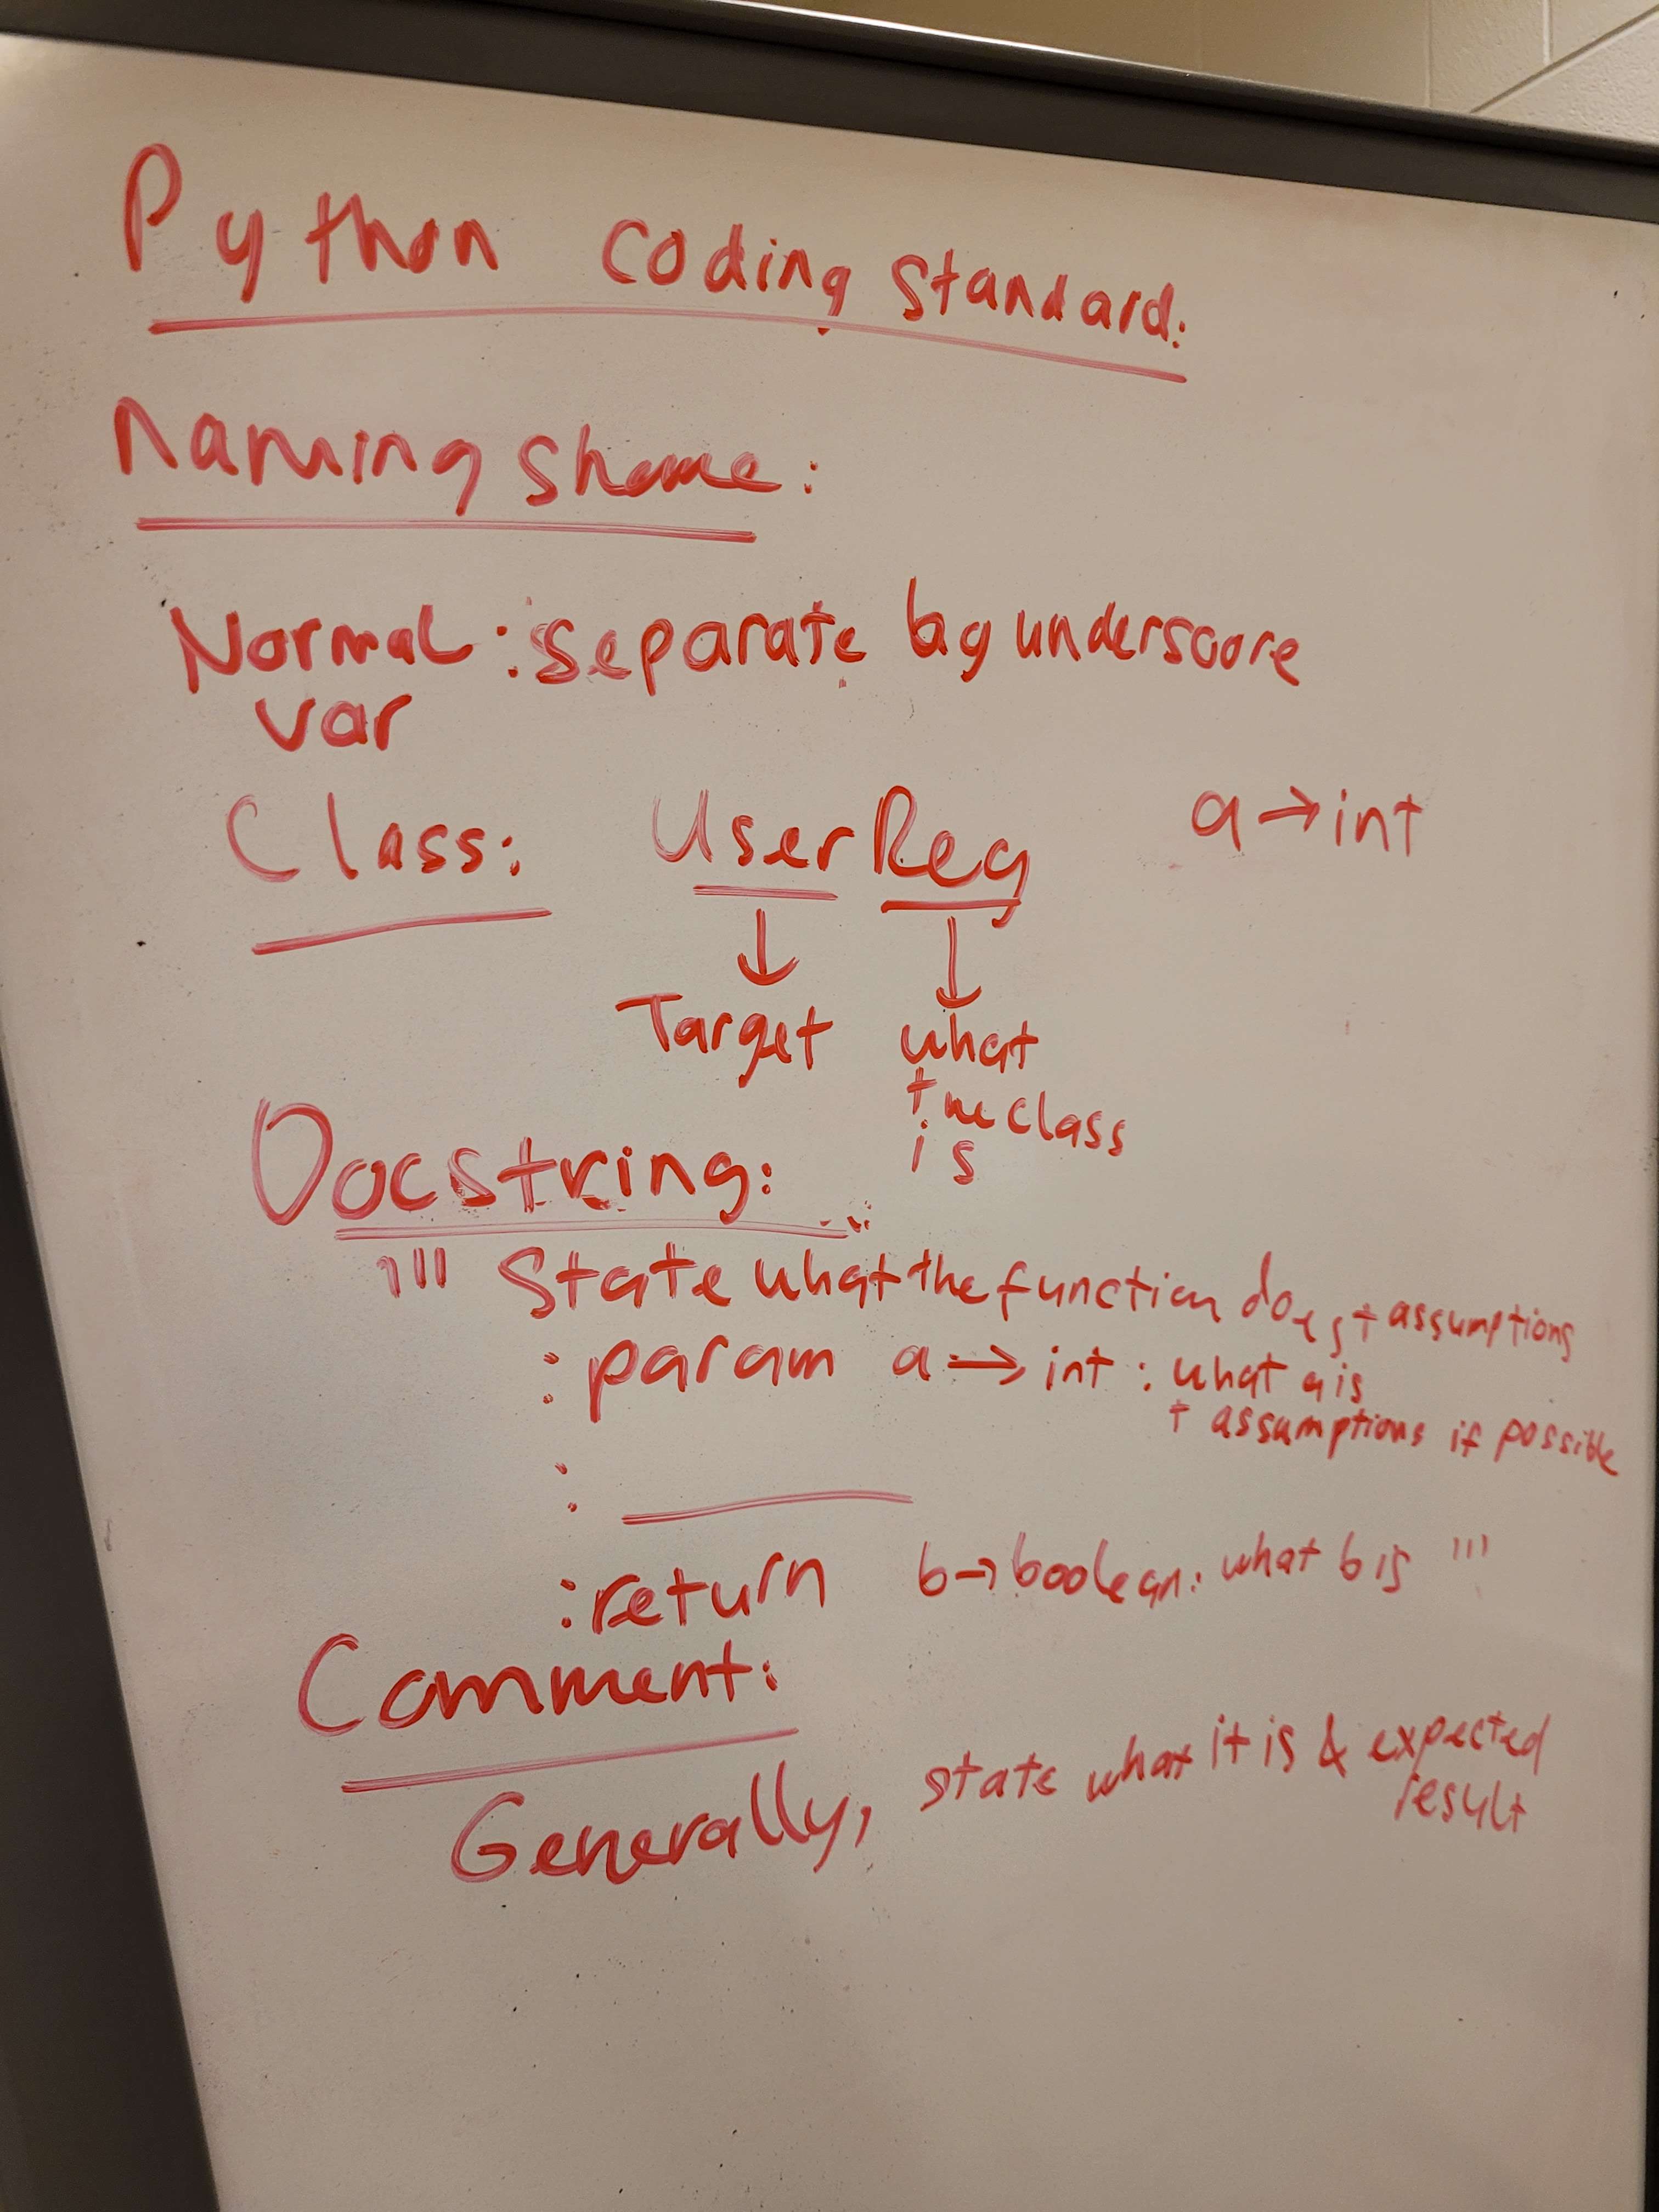 Python coding standard:
Naming Sheme:
Normal : separate by underscore
var
Class: UserReg a → int
Target what
the class
is
Docstring:
''' State what the function does + assumptions
: param a → int : what a is
+ assumptions if possible
:
:return b → boolean: what b is '''
Comment:
Generally, state what it is & expected
result